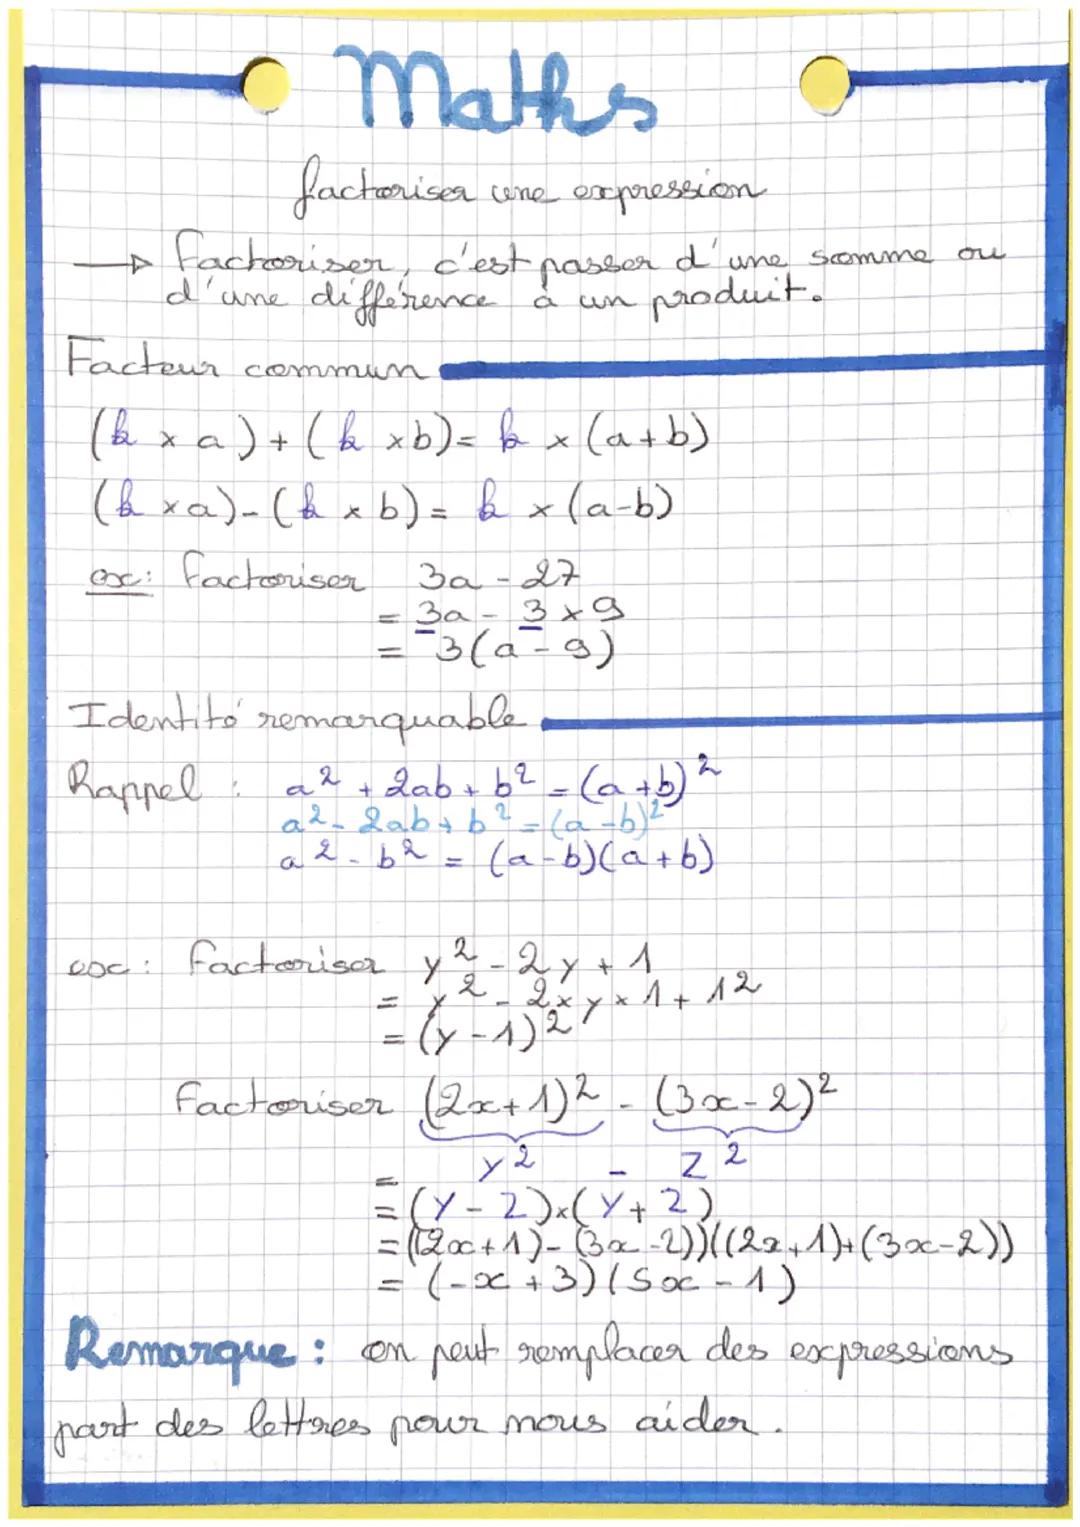 Maths
factoriser une expression
→ factoriser, c'est passer d'une somme ou
d'une différence à un produit.
Facteur commun
(k × a) + (k × b) = k × (a+b)
(k × a) - (k × b) = k × (a-b)
ex: factoriser 3a - 27
= 3a - 3 × 9
= 3(a - 9)
Identité remarquable
Rappel : a² + 2ab + b² = (a+b)²
a² - 2ab + b² = (a-b)²
a² - b² = (a-b)(a+b)
ex: factoriser y² - 2y + 1
= y² - 2×y×1 + 1²
= (y-1)²
factoriser (2x+1)² - (3x-2)²
= y² - z²
= (y - z)×(y + z)
= ((2x+1)-(3x-2))((2x+1)+(3x-2))
= (-x+3)(5x-1)
Remarque : on peut remplacer des expressions
part des lettres pour nous aider.